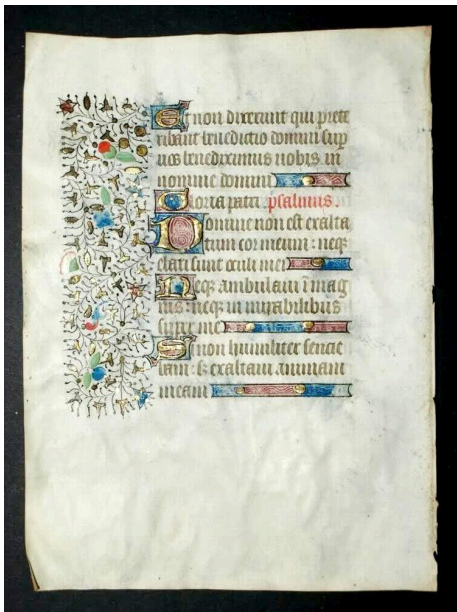 Et non dixerunt qui prete
ribant benedictio domini sup
vos benediximus vobis in
nomine domini
Gloria patri. psalmus.
Domine non est exalta
tum cor meum: neq
elati sunt oculi mei
Neq ambulavi i mag
nis: neq in mirabilibus
supr me
Si non humiliter sencie
bam: s exaltavi animam
meam